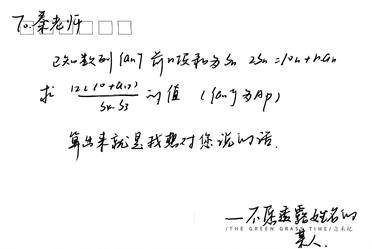 To. 蔡老师
已知数列{an}前n项和为Sn 2Sn=10n+n·an
求 12(10+an)/(S4-S3) 的值 ({an}为Ap)
算出来就是我想对你说的话.
——不愿透露姓名的
某人.
/THE GREEN GRASS TIME/